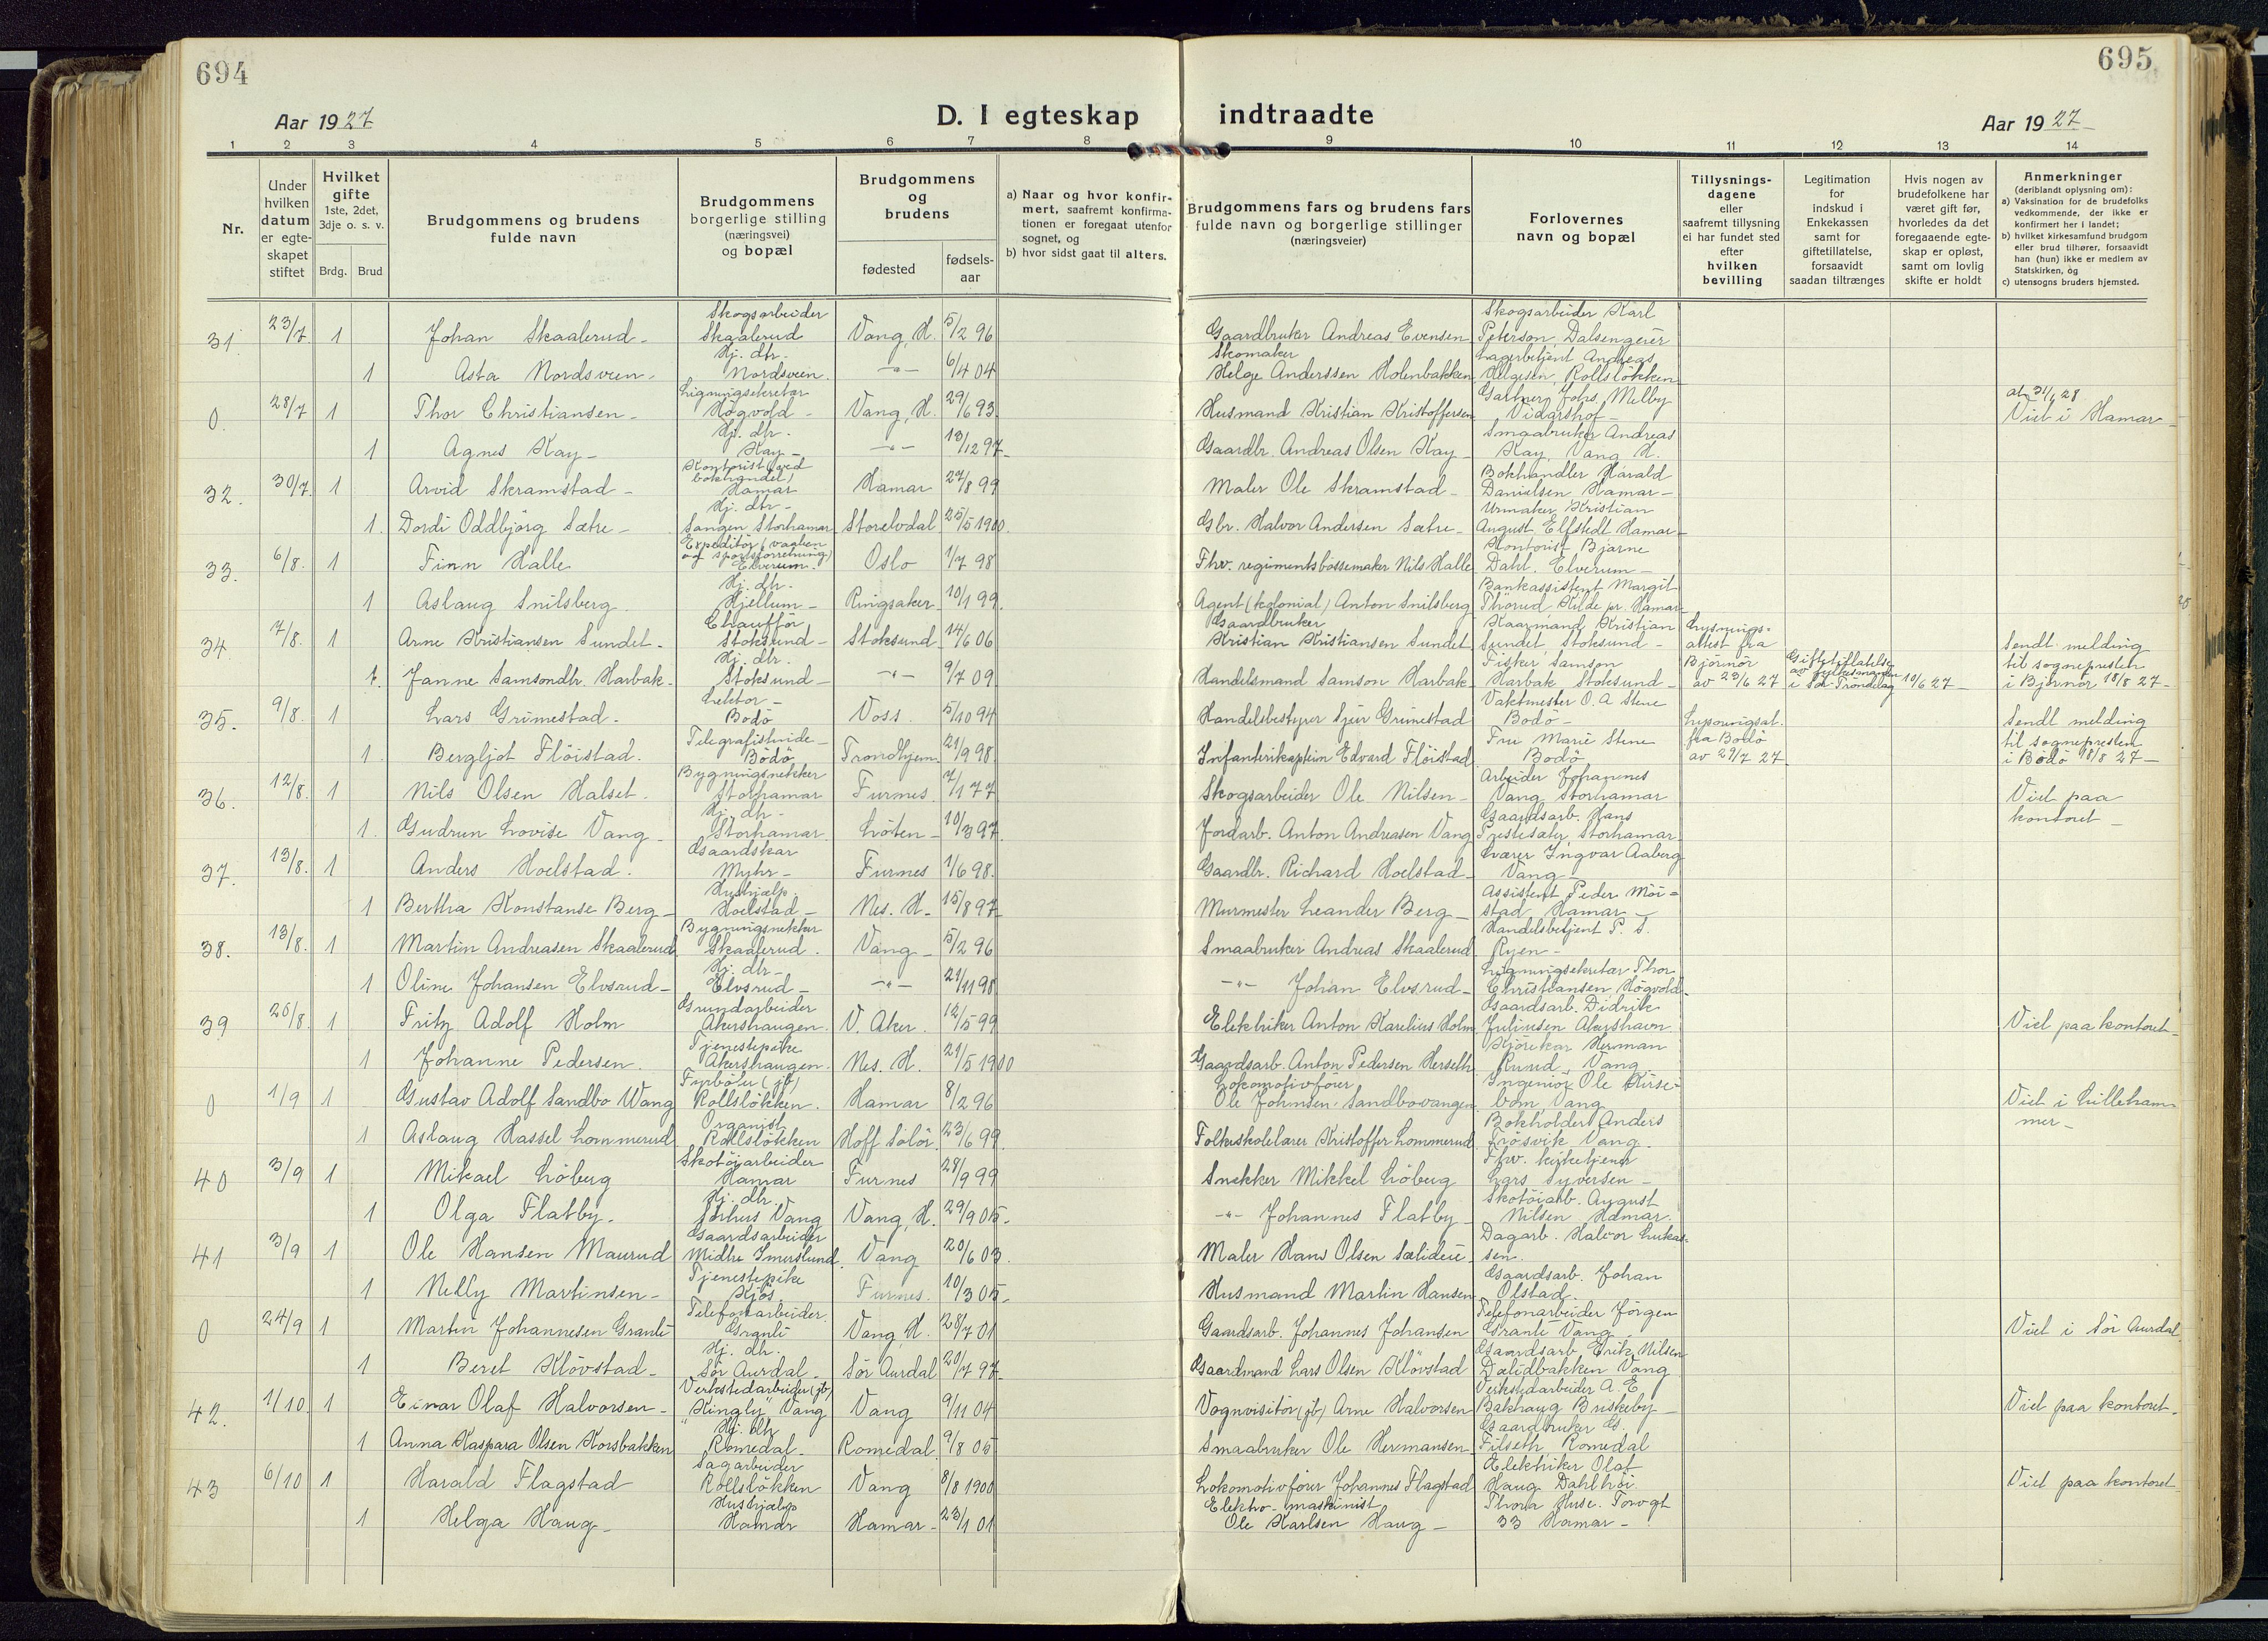 694
695
Aar 1927
D. I egteskap indtraadte
Aar 1927
1 2 3 4 5 6 7 8 9 10 11 12 13 14
Nr.
Under hvilken datum er egteskapet stiftet
Hvilket gifte 1ste, 2det, 3dje o. s. v.
Brdg. Brud
Brudgommens og brudens fulde navn
Brudgommens borgerlige stilling (næringsvei) og bopæl
Brudgommens og brudens
fødested
fødsels-aar
a) Naar og hvor konfir-
mert, saafremt konfirma-
tionen er foregaat utenfor
sognet, og
b) hvor sidst gaat til alters.
Brudgommens fars og brudens fars
fulde navn og borgerlige stillinger
(næringsveier)
Forlovernes
navn og bopæl
Tillysnings-
dagene
eller
saafremt tillysning
ei har fundet sted
efter
hvilken
bevilling
Legitimation
for
indskud i
Enkekassen
samt for
giftetillatelse,
forsaavidt
saadan tiltrænges
Hvis nogen av
brudefolkene har
været gift før,
hvorledes da det
foregaaende egte-
skap er opløst,
samt om lovlig
skifte er holdt
Anmerkninger
(deriblandt oplysning om):
a) Vaksination for de brudefolks
vedkommende, der ikke er
konfirmert her i landet;
b) hvilket kirkesamfund brudgom
eller brud tilhører, forsaavidt
han (hun) ikke er medlem av
Statskirken, og
c) utensogns bruders hjemsted.
31. 23/7. 1 Johan Skaalerud - Skogsarbeider Skaalerud Vang, H. 5/2 96 Gaardbruker Andreas Evensen Skogsarbeider Karl Peterson, Dalsengeier
1 Asta Nordsveen - Hj. dtr. Nordsveen. -"- 6/4 04 Skomaker Helge Anderssen Holenbakken Lagerbetjent Andreas Helgesen, Rollsløkken
0. 28/7 1 Thor Christiansen - Ligningsekretær Høgvold - Vang, H. 29/6 93 Husmand Kristian Kristoffersen Gartner Johs. Melby Vidarshof - Viet i Hamar
1 Agnes Kay - Hj. dtr. Kay - -"- 13/12 97 Gaardbr. Andreas Olsen Kay - Smaabruker Andreas Kay, Vang H.
32. 30/7. 1 Arvid Skramstad - Kontorist (ved bokhandel) Hamar Hamar 27/8 99 Maler Ole Skramstad - Bokhandler Harald Danielsen Hamar -
1. Dordi Oddbjørg Sætre - Hj. dtr - Sangen Storhamar Storelvdal 25/5 1900. Gbr. Halvor Andersen Sætre - Urmaker Kristian August Elfstedt Hamar -
33. 6/8. 1 Finn Halle Expeditør (vaaben og sportsforretning) Elverum. Oslo 1/7 98 Fhv. regimentsbøssemaker Nils Halle Kontorist Bjarne Dahl. Elverum -
1 Aslaug Snilsberg. Hj. dtr. Hjellum - Ringsaker 10/1 99. Agent (kolonial) Anton Snilsberg Bankassistent Margit Thorud Kilde pr. Hamar
34. 7/8. 1 Arne Kristiansen Sundet. Chauffør Stoksund - Stoksund 14/6 06 Gaardbruker Kristian Kristiansen Sundet Kaarmand Kristian Sundet, Stoksund - Lysnings-attest fra Bjørnør av 23/6 27 Giftetillatelse av fylkesmanden i Sør-Trøndelag 10/6 27 - Sendt melding til sognepresten i Bjørnør 18/8 27 -
1. Janne Samsondtr. Harbak - Hj. dtr. Stoksund - -"- 9/7 09 Handelsmand Samson Harbak Fisker Samson Harbak Stoksund -
35. 9/8. 1 Lars Grimestad. Lektor - Bodø Voss. 5/10 94 Handelsbestyrer Sjur Grimestad Vaktmester O. A Stene Bodø - fra Bodø av 29/7 27 Sendt melding til sognepresten i Bodø 18/8 27 -
1. Bergljot Fløistad. Telegrafistinde - Bodø Trondhjem 21/9 98 Infanterikaptein Edvard Fløistad Fru Marie Stene Bodø
36. 12/8. 1 Nils Olsen Halset. Bygningsnekker Storhamar Furnes. 7/1 77 Skogsarbeider Ole Nilsen - Arbeider Johannes Vang Storhamar Viet paa kontoret -
1. Gudrun Lovise Vang - Hj. dtr - Storhamar. Løten - 10/3 97. Jordarb. Anton Andreasen Vang Gaardsarb. Hans Prestesæter Storhamar
37. 13/8. 1 Anders Hoelstad. Gaardskar Myhr - Furnes 1/6 98. Gaardbr. Richard Hoelstad - Lærer Ingvar Aaberg Vang -
1 Bertha Konstanse Berg - Hushjælp. Hoelstad - Nes. H. 15/8 97 Murmester Leander Berg - Assistent Peder Moi=stad Hamar -
38. 13/8. 1 Martin Andreasen Skaalerud Bygningsnekker Skaalerud. Vang - 5/2 96 Smaabruker Andreas Skaalerud Handelsbetjent P. S. Ryen -
1 Oline Johansen Elvsrud - Hj. dtr - Elvsrud - -"- 21/11 98 -"- Johan Elvsrud - Ligningsekretær Thor Christiansen Høgvold -
39 26/8. 1 Fritz Adolf Holm Grundarbeider Akershaugen. V. Aker. 12/5 99 Elektriker Anton Karelius Holm Gaardsarb. Didrik Juliusen Akershavn Viet paa kontoret -
1 Johanne Pedersen. Tjenestepike Akershaugen. Nes. H. 21/5 1900 Gaardsarb. Anton Pedersen Herseth Kjørekar Herman Ruud, Vang
0 1/9 1 Gustav Adolf Sandbo Wang Fyrbøter (jb) Rollsløkken. Hamar 8/2 96 Lokomotivfører Ole Johnsen Sandbovangen Ingeniør Ole Kirse-bom, Vang Viet i Lilleham-mer -
1 Aslaug Hassel Lommerud Organist Rollsløkken Hoff Solør 23/6 99 Folkeskolelærer Kristoffer Lommerud Bokholder Anders Frøsvik Vang.
40 3/9 1 Mikael Løberg Skotøjarbeider Hamar Furnes 28/9 99 Snekker Mikkel Løberg Fhv. kirketjener Lars Syversen -
1 Olga Flatby. Hj. dtr. Vang Vang, H. 29/9 05. -"- Johannes Flatby - Skotøiarb. August Nilsen Hamar.
41 3/9 1 Ole Hansen Maurud Gaardsarbeider Midtre Imerslund. Vang 20/6 03. Maler Hans Olsen Sælideie - Dagarb. Halvor Lukas-sen.
1 Nelly Martinsen - Tjenestepike Kjøs. Furnes. 10/3 05 - Husmand Martin Hansen Gaardsarb. Johan Olstad.
0 24/9 1 Martin Johannesen Granli Telefonarbeider. Granli Vang, H. 28/7 01 Gaardsarb. Johannes Johansen Telefonarbeider Jørgen Granli Vang. Viet i Sør Aurdal
1 Beret Kløvstad - Hj. dtr. Sør Aurdal - Sør Aurdal 20/7 97 Gaardmand Lars Olsen Kløvstad Gaardsarb. Erik Nilsen Dælidbakken Vang
42. 1/10. 1 Einar Olaf Halvorsen - Verkstedarbeider (jb) "Kingly" Vang Vang 9/11 04 Vognvisitør (jb) Arne Halvorsen Verkstedarbeider A. E Bakhaug Briskeby - Viet paa kontoret.
1 Anna Kaspara Olsen Korsbakken Hj. dtr Romedal - Romedal 9/8 05 Smaabruker Ole Hermansen Gaardbruker G. Filseth, Romedal
43 6/10 1 Harald Flagstad Sagarbeider Rollsløkken Vang 8/8 1900 Lokomotivfører Johannes Flagstad Elektriker Olaf Haug Dahlhøi. Viet paa kontoret
1 Helga Haug - Hushjælp Hamar Hamar - 23/1 01 Elektro-maskinist Ole Karlsen Haug - Thora Huse. Torvgt 33 Hamar -